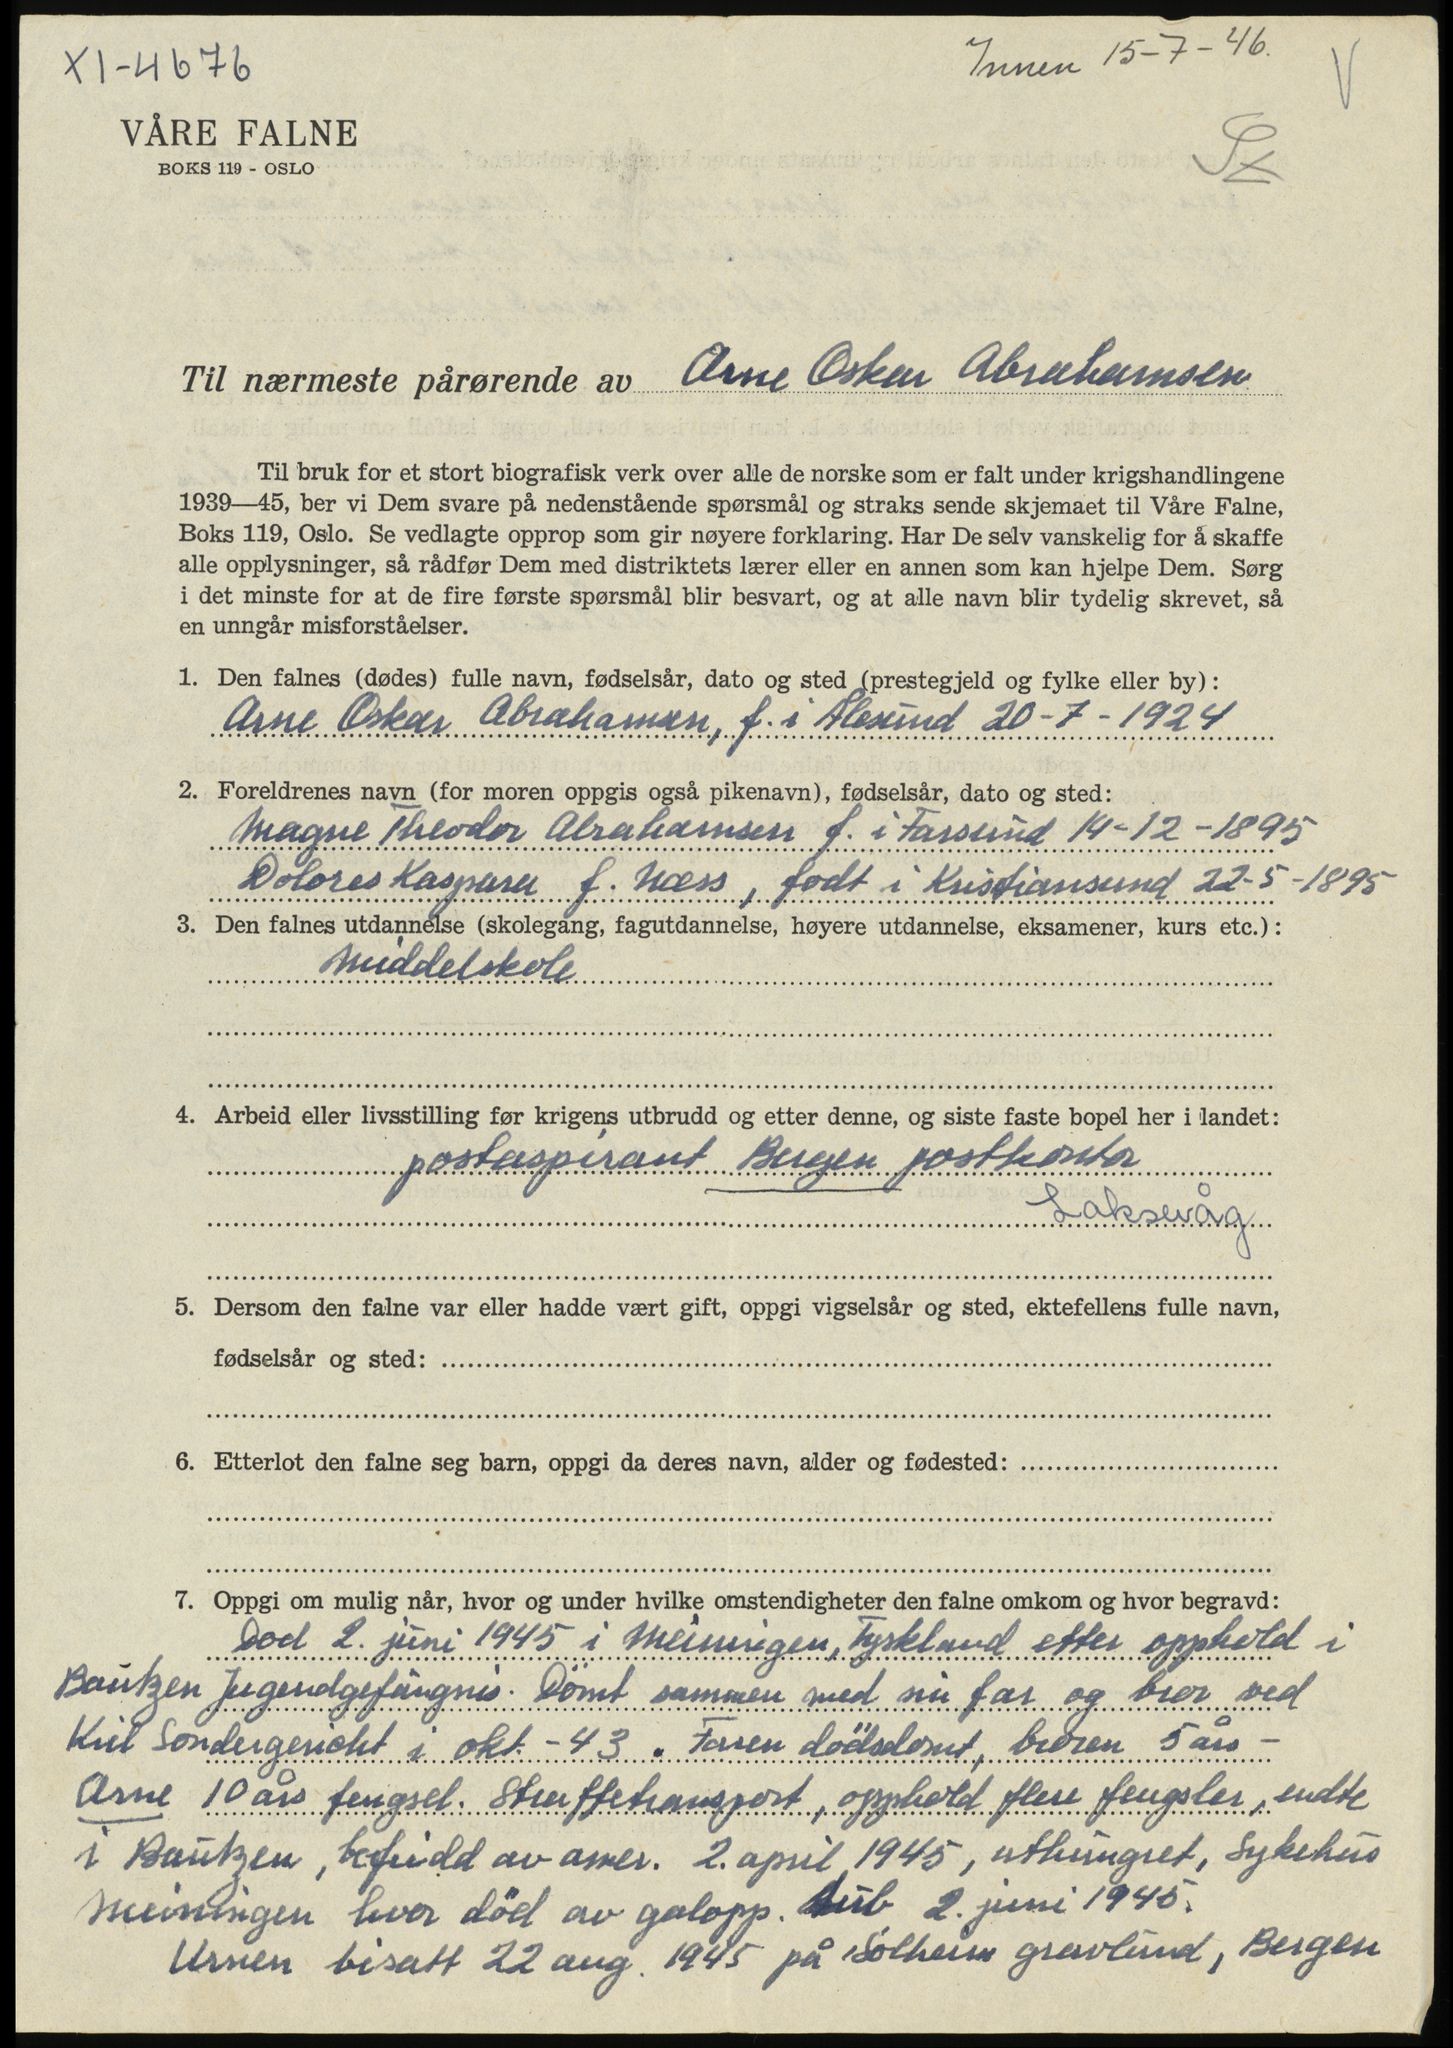 XI-4676
Innen 15-7-46.
V
VÅRE FALNE
BOKS 119 - OSLO
Til nærmeste pårørende av Arne Oskar Abrahamsen
Til bruk for et stort biografisk verk over alle de norske som er falt under krigshandlingene
1939—45, ber vi Dem svare på nedenstående spørsmål og straks sende skjemaet til Våre Falne,
Boks 119, Oslo. Se vedlagte opprop som gir nøyere forklaring. Har De selv vanskelig for å skaffe
alle opplysninger, så rådfør Dem med distriktets lærer eller en annen som kan hjelpe Dem. Sørg
i det minste for at de fire første spørsmål blir besvart, og at alle navn blir tydelig skrevet, så
en unngår misforståelser.
1. Den falnes (dødes) fulle navn, fødselsår, dato og sted (prestegjeld og fylke eller by):
Arne Oskar Abrahamsen, f. i Ålesund 20-7-1924
2. Foreldrenes navn (for moren oppgis også pikenavn), fødselsår, dato og sted:
Magne Theodor Abrahamsen f. i Farsund 14-12-1895
Dolores Kaspara f. Næss, født i Kristiansund 22-5-1895
3. Den falnes utdannelse (skolegang, fagutdannelse, høyere utdannelse, eksamener, kurs etc.):
Middelskole
4. Arbeid eller livsstilling før krigens utbrudd og etter denne, og siste faste bopel her i landet:
postaspirant Bergen postkontor
Laksevåg
5. Dersom den falne var eller hadde vært gift, oppgi vigselsår og sted, ektefellens fulle navn,
fødselsår og sted:
6. Etterlot den falne seg barn, oppgi da deres navn, alder og fødested:
7. Oppgi om mulig når, hvor og under hvilke omstendigheter den falne omkom og hvor begravd:
Død 2. juni 1945 i Meiningen, Tyskland etter opphold i
Bautzen Jugendgefängnis. Dömt sammen med sin far og bror ved
Kiel Sondergericht i okt. -43. Faren dödsdömt, broren 5 års -
Arne 10 års fengsel. Straffetransport, opphold flere fengsler, endte
i Bautzen, befridd av amer. 2. april 1945, uthungret, Sykehus
Meiningen hvor död av galopp. tub 2. juni 1945.
Urnen bisatt 22 aug. 1945 på Solheim gravlund, Bergen